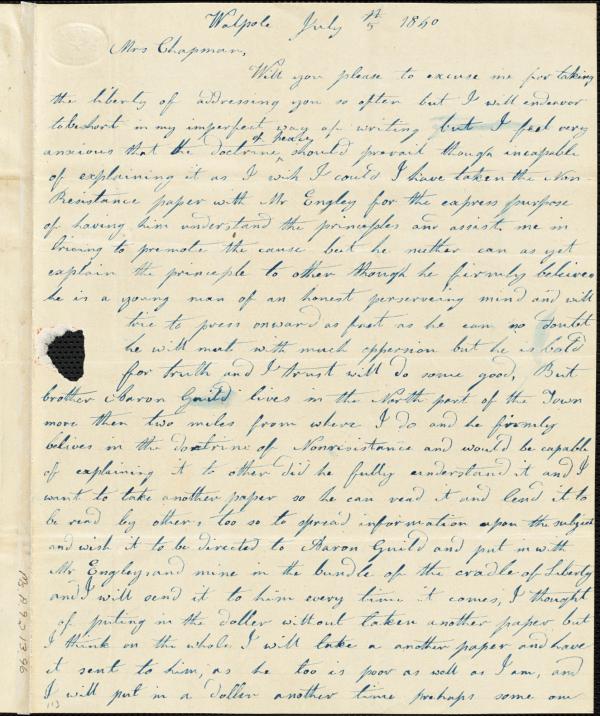 Walpole July 5th 1840
Mrs Chapman,
Will you please to excuse me for taking
the liberty of addressing you so often but I will endevor
to be short in my imperfect way of writing but I feel very
anxious that the doctrine of peace should prevail though incapable
of explaining it as I wish I could I have taken the Non-
Resistance paper with Mr Engley for the express purpose
of having him understand the principles and assist me in
trieing to promote the cause but he neither can as yet
explain the principle to other though he firmly beleives
he is a young man of an honest persevering mind and will
trie to press onward as fast as he can no doubt
he will meet with much oppersion but he is bold
for truth and I trust will do some good, But
brother Aaron Guild lives in the North part of the Town
more then two miles from where I do and he firmly
belives in the doctrine of Nonresistance and would be capable
of explaining it to other did he fully understand it and I
want to take another paper so he can read it and lend it to
be read by others too so to spread information upon the subject
and wish it to be directed to Aaron Guild and put in with
Mr Engleys and mine in the bundle of the cradle of Liberty
and I will send it to him every time it comes, I thought
of puting in the doller without taken another paper but
I think on the whole I will take a another paper and have
it sent to him, as he too is poor as well as I am, and
I will put in a doller another time prehaps some one
113